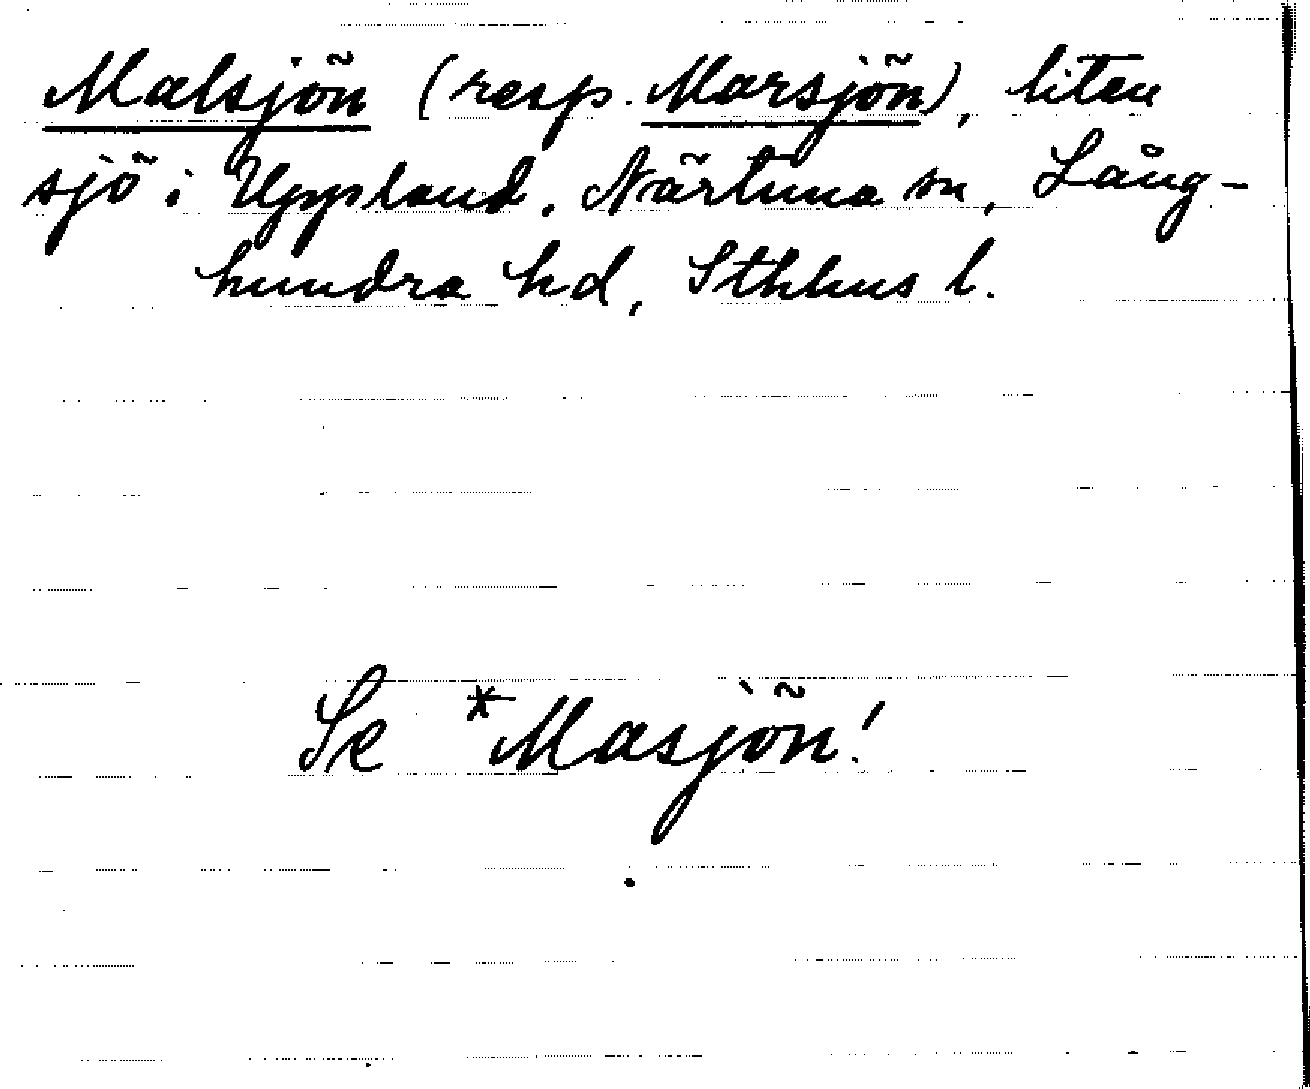 Malsjön (resp. Marsjön), liten
sjö i Uppland, Närtuna sn, Lång-
hundra hd, Sthlms l.
Se *Masjön!